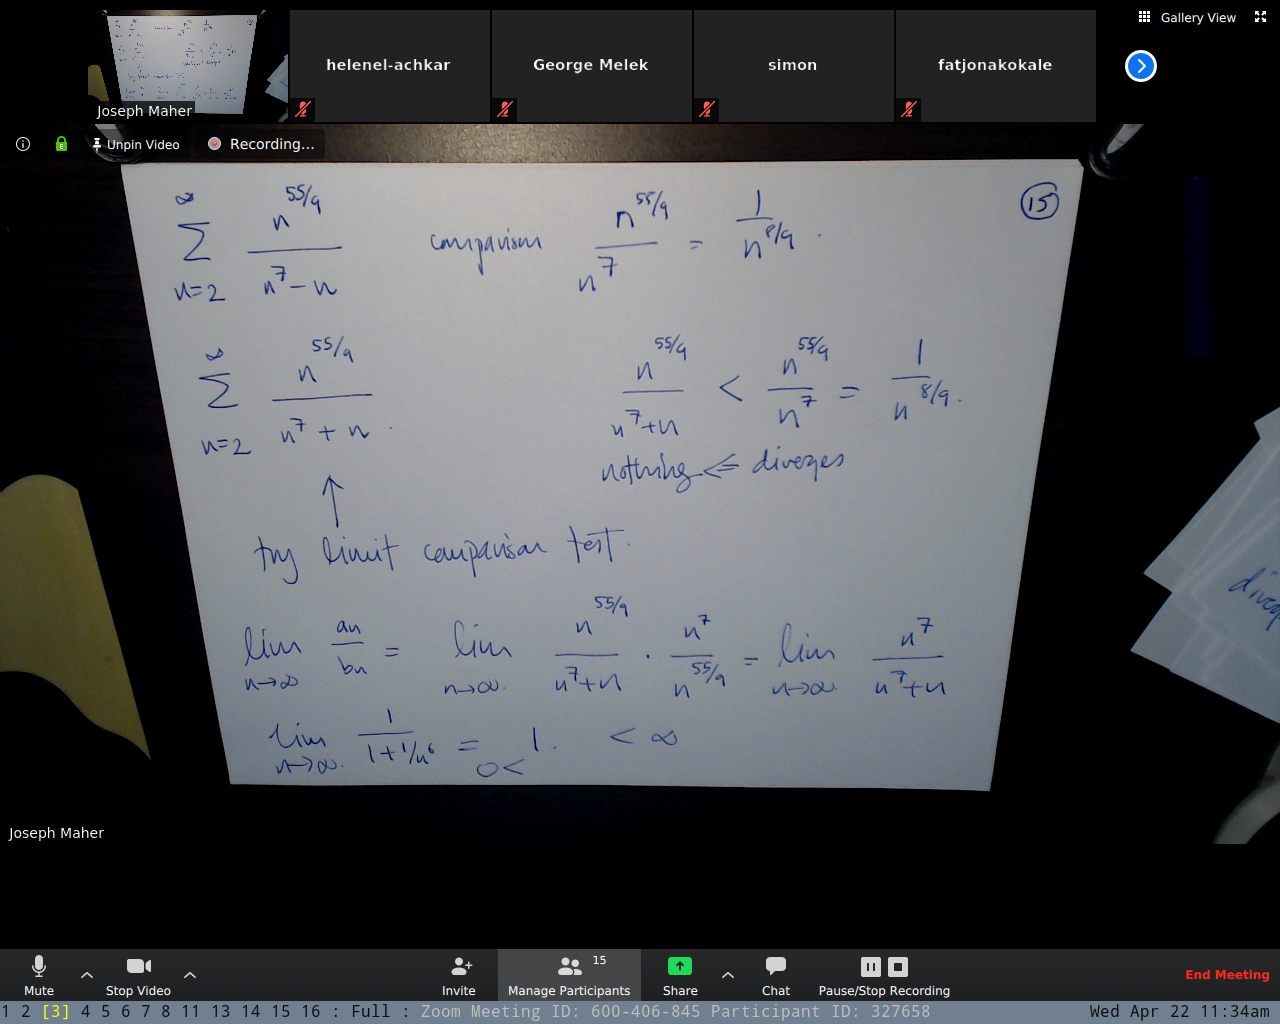 Gallery View
helenel-achkar
George Melek
simon
fatjonakokale
Joseph Maher
Unpin Video
Recording...
15
∞ Σ n=2 n^55/9 / n^7 - n comparison n^55/9 / n^7 = 1 / n^8/9 .
∞ Σ n=2 n^55/9 / n^7 + n . n^55/9 / n^7+n < n^55/9 / n^7 = 1 / n^8/9 .
nothing <= diverges
↑
try limit comparison test.
lim n→∞ an / bn = lim n→∞. n^55/9 / n^7+n · n^7 / n^55/9 = lim n→∞ n^7 / n^7+n
lim n→∞. 1 / 1+1/n^6 = 0 < 1. < ∞
Joseph Maher
Mute
Stop Video
Invite
15
Manage Participants
Share
Chat
Pause/Stop Recording
End Meeting
1 2 [3] 4 5 6 7 8 11 13 14 15 16 : Full : Zoom Meeting ID: 600-406-845 Participant ID: 327658
Wed Apr 22 11:34am